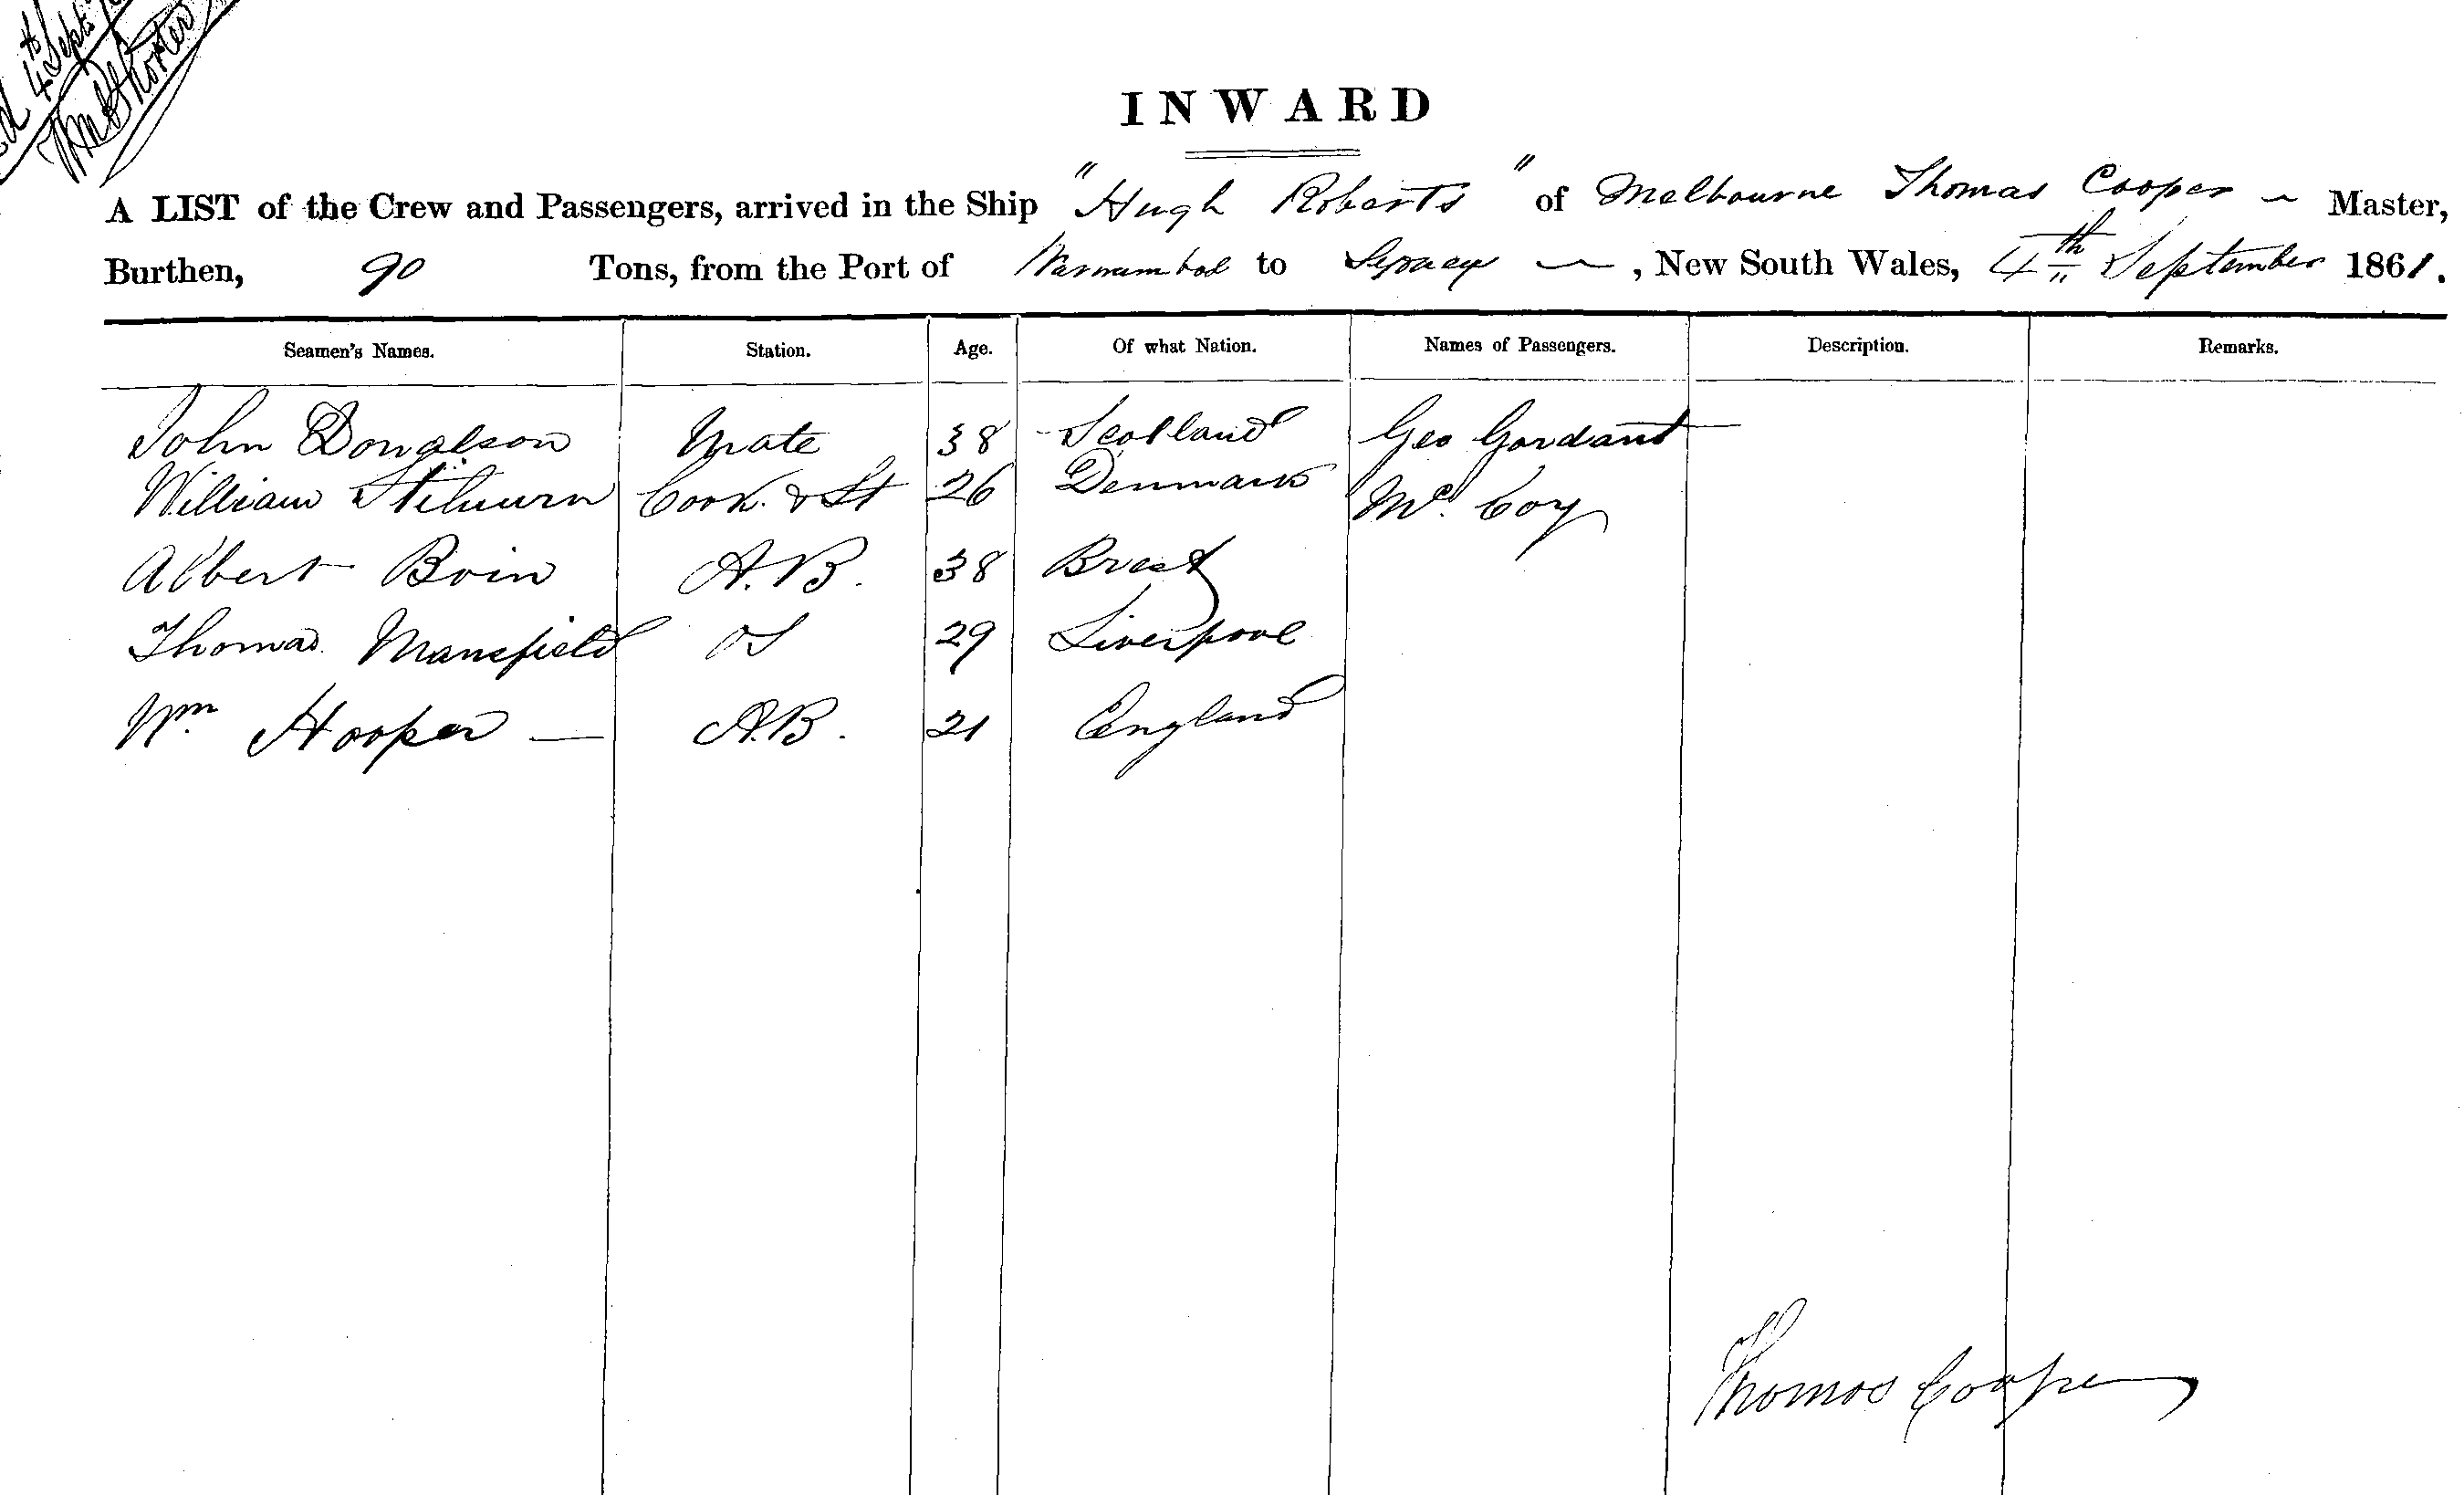 4th Sept
INWARD
A LIST of the Crew and Passengers, arrived in the Ship "Hugh Roberts" of Melbourne Thomas Cooper Master,
Burthen, 90 Tons, from the Port of Warnambool to Sydney, New South Wales, 4th September 1861.
Seamen's Names. Station. Age. Of what Nation. Names of Passengers. Description. Remarks.
John Donalson Mate 38 Scotland Geo Gordant
William Cook & St 26 Denmark Mc. Coy
Albert Boin A.B. 38 Brest
Thomas Mansfield OS 29 Liverpool
Wm. Hooper — A.B. 21 England
Thomas Cooper